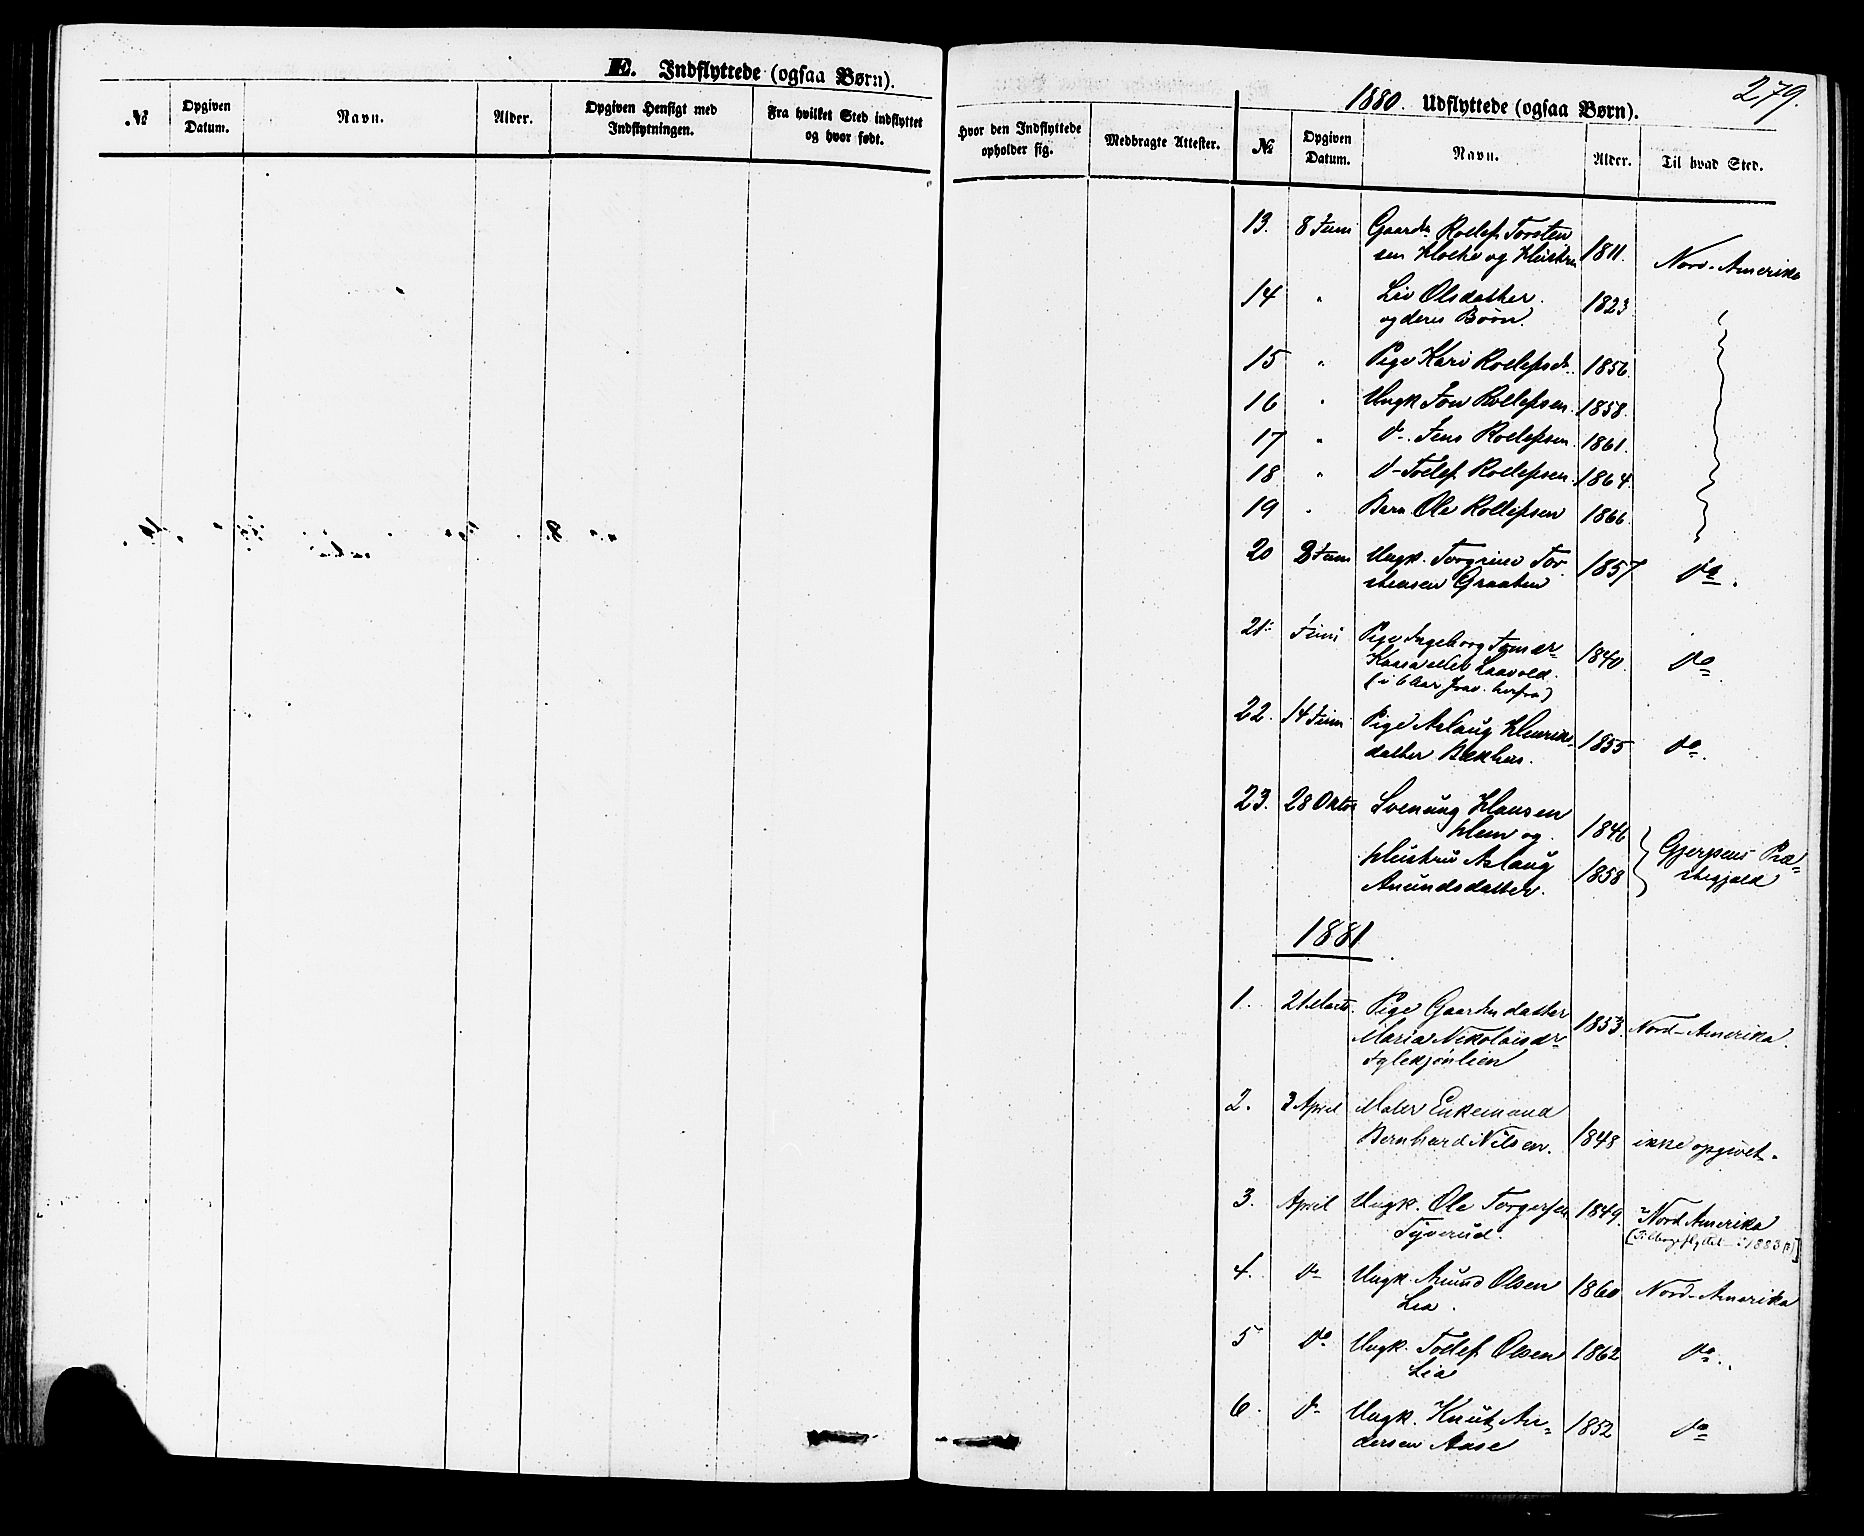 E. Indflyttede (ogsaa Børn).
№
Opgiven Datum.
Navn.
Alder.
Opgiven Hensigt med Indflytningen.
Fra hvilket Sted indflyttet og hvor født.
Hvor den Indflyttede opholder sig.
Medbragte Attester.
279.
1880. Udflyttede (ogsaa Børn).
№
Opgiven Datum.
Navn.
Alder.
Til hvad Sted.
13. 8 Juni Gaardm. Rollef Torsten
sen og Hustru 1811. Nord-Amerika
14 " Liv Olsdatter 1823
og deres Børn.
15 " Pige Kari Rollefsdr. 1856.
16 " Ungk Jon Rollefsen. 1858.
17 " do. Jens Rollefsen. 1861.
18 " do Tollef Rollefsen. 1864.
19 " Barn Ole Rollefsen 1866.
20 8 Juni Ungk. Torgrim Tor
stensen Graaten 1857 do.
21. Juni Pige Ingeborg 1840. do
Kaasa eller Laavold.
(i 6 Aar frav. herfra)
22. 14 Juni Pige Aslaug Henriks
datter Bakhus. 1855 do.
23. 28 Oktbr Svenung Hansen
Hem og 1846
Hustru Aslaug Gjerpens Præ
Anundsdatter. 1858 stegjæld
1881
1. 21 Marts. Pige Gaardm datter
Maria Nikolaisdr 1853. Nord-Amerika.
2. 3 April Maler Enkemand
Bernhard Nilsen. 1848 ikke opgivet.
3. April Ungk. Ole Torgersen 1849. Nord Amerika
Tyverud. (Tilbageflyttet i 1883)
4. do Ungk. Anund Olsen 1860 Nord-Amerika
Lia.
5 do. Ungk. Tollef Olsen 1862 do.
Lia
6. do Ungk. Knut An-
dersen Aase 1852 do